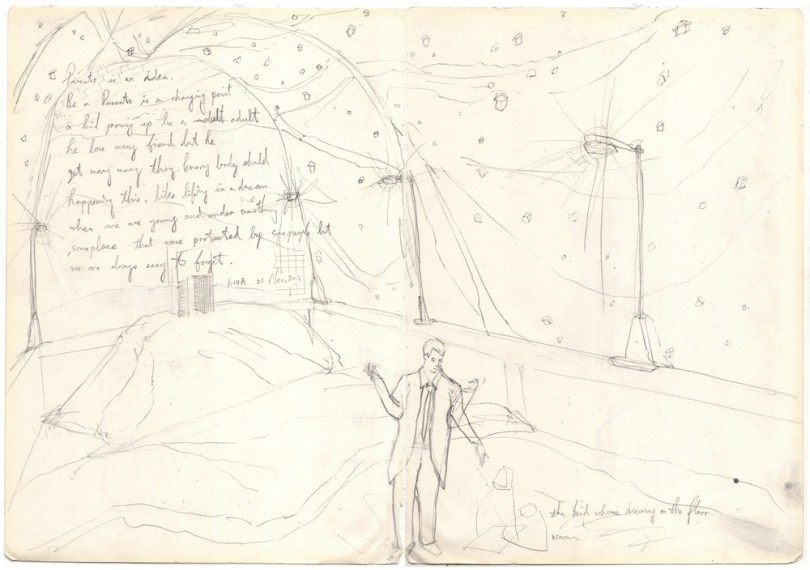 Parents is an idea.
Be a Parents is a changing point
a kid growing up be a adult adult
he love many friend but he
get many many thing every body should
happening this. like living in a dream
when we are young and under something
, someplace that were protected by people but
we are always easy to forget.
21 Nov, 202
the kid whose drawing on the floor